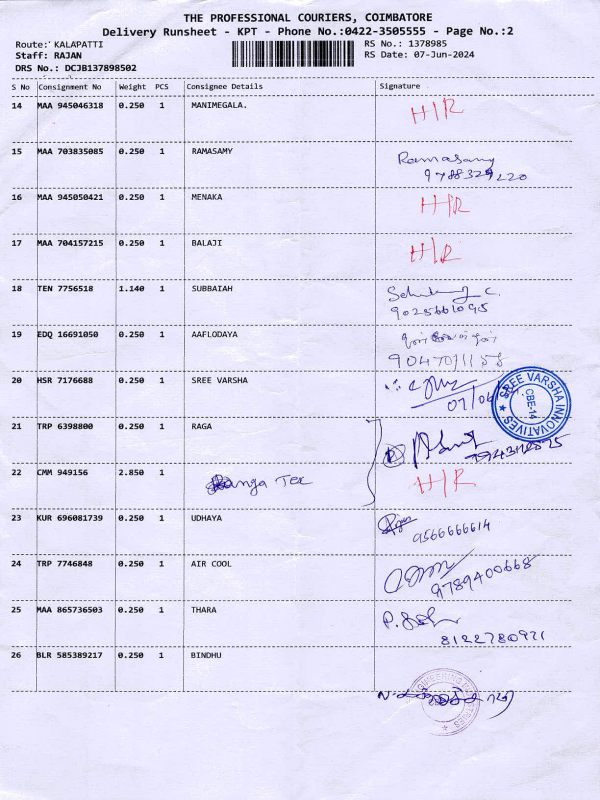 THE PROFESSIONAL COURIERS, COIMBATORE
Delivery Runsheet - KPT - Phone No.:0422-3505555 - Page No.:2
Route: KALAPATTI
RS No.: 1378985
Staff: RAJAN
RS Date: 07-Jun-2024
DRS No.: DCJB137898502
S No Consignment No Weight PCS Consignee Details Signature
14 MAA 945046318 0.250 1 MANIMEGALA. H/R
15 MAA 703835085 0.250 1 RAMASAMY Ramasamy
9788329220
16 MAA 945050421 0.250 1 MENAKA H/R
17 MAA 704157215 0.250 1 BALAJI H/R
18 TEN 7756518 1.140 1 SUBBAIAH
9025661095
19 EDQ 16691050 0.250 1 AAFLODAYA
9047071158
20 HSR 7176688 0.250 1 SREE VARSHA
07/06
SREE VARSHA INNOVATIVES
CBE-14
21 TRP 6398800 0.250 1 RAGA
22 CMM 949156 2.850 1 Ranga Tex H/R
23 KUR 696081739 0.250 1 UDHAYA
9566666614
24 TRP 7746848 0.250 1 AIR COOL
9789400668
25 MAA 865736503 0.250 1 THARA
8122780971
26 BLR 585389217 0.250 1 BINDHU